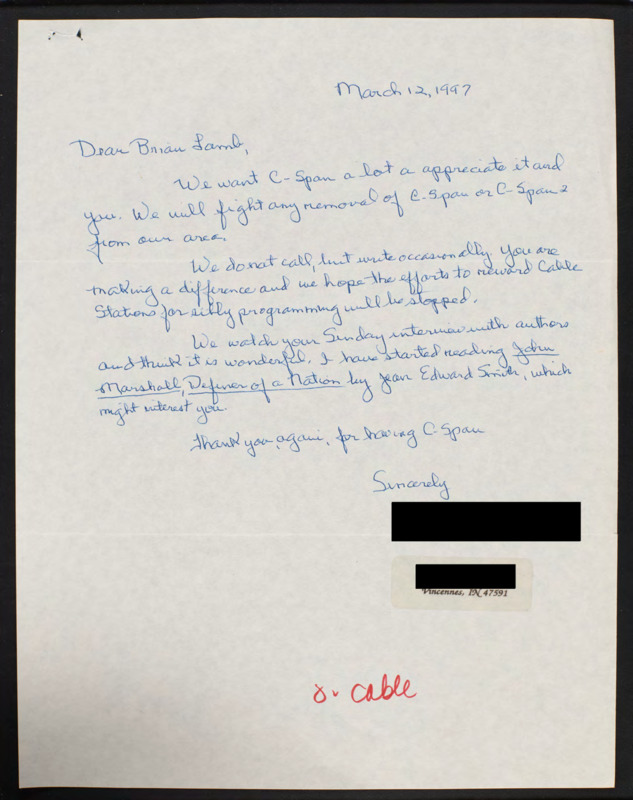 March 12, 1997
Dear Brian Lamb,
We want C-Span a lot a appreciate it and
you. We will fight any removal of C-Span or C-Span 2
from our area.
We do not call, but write occasionally. You are
making a difference and we hope the efforts to reward Cable
Stations for silly programming will be stopped.
We watch your Sunday interview with authors
and think it is wonderful. I have started reading John
Marshall, Definer of a Nation by Jean Edward Smith, which
might interest you.
Thank you, again, for having C-Span
Sincerely
Vincennes, IN 47591
cable